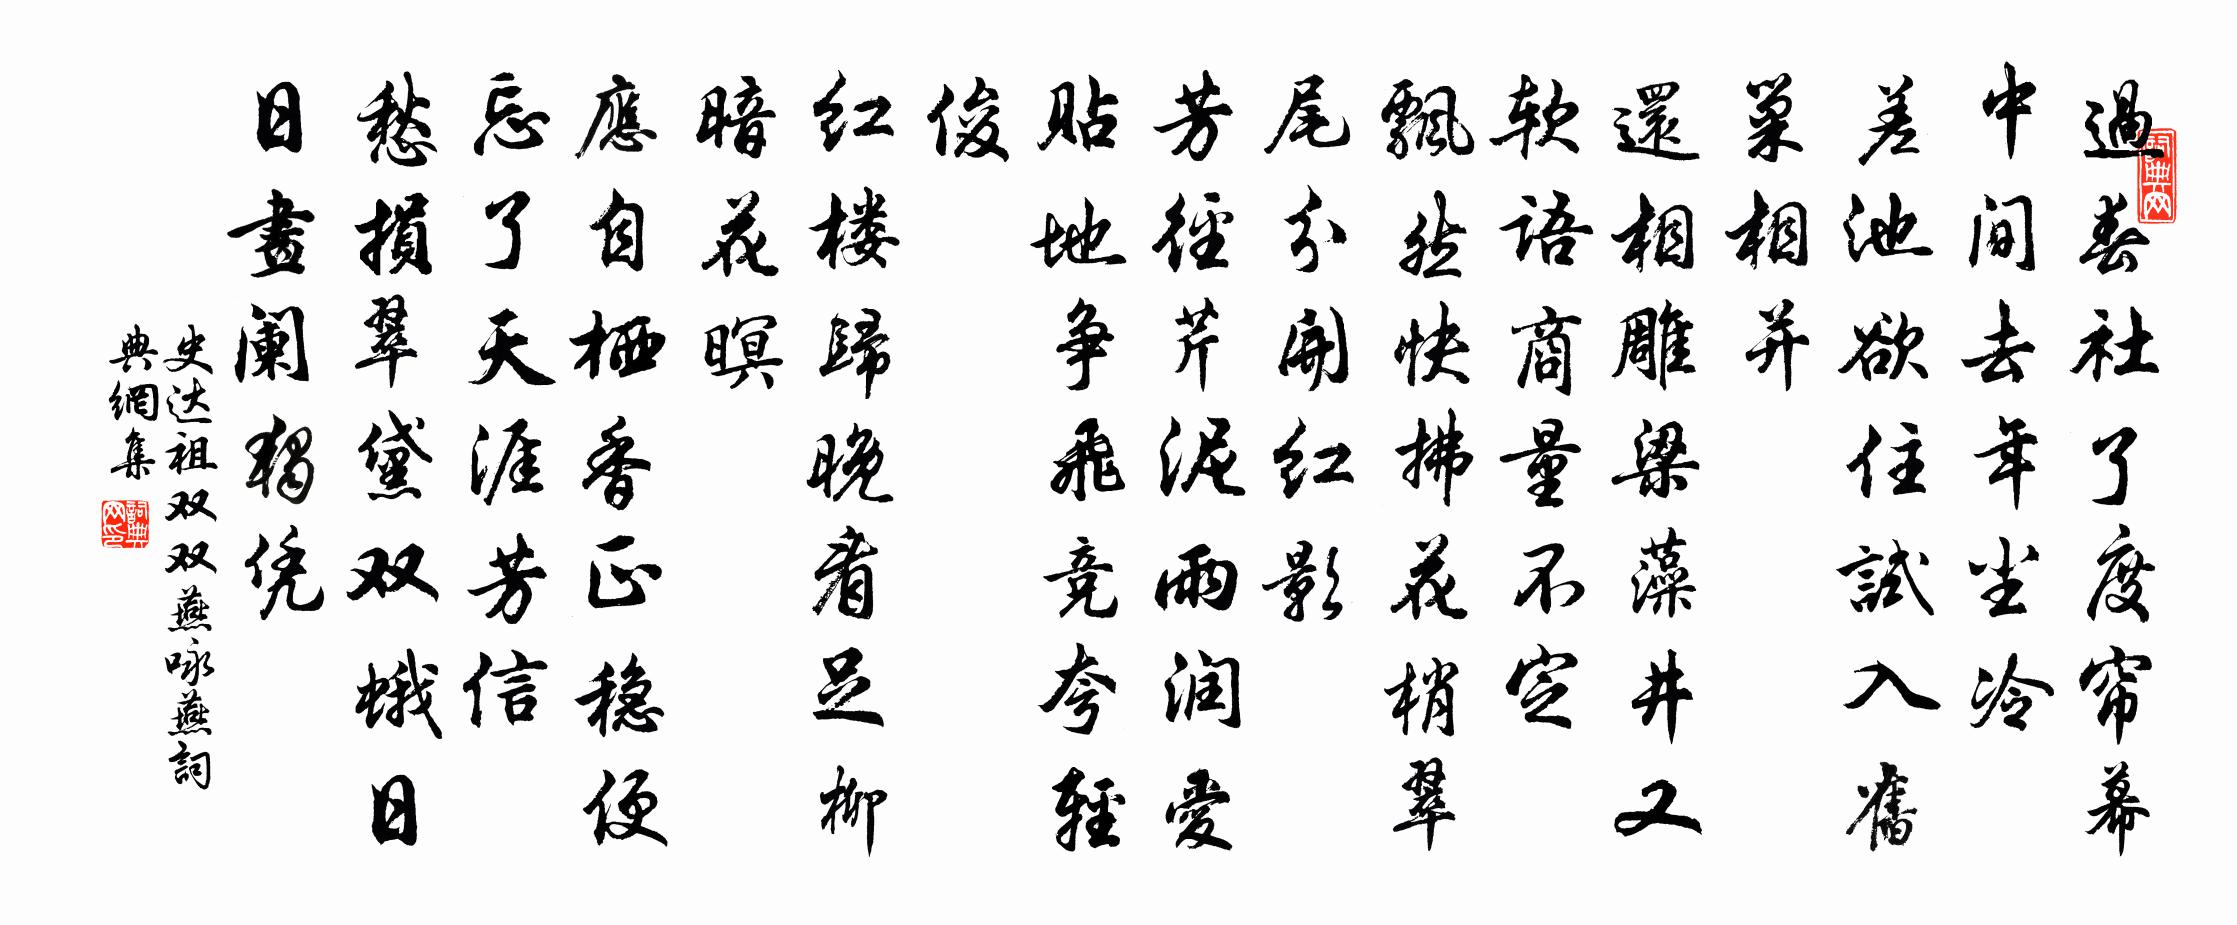 過春社了度帘幕
中间去年尘冷
差池欲住試入舊
巢相并
還相雕梁藻井又
软語商量不定
飄然快拂花梢翠
尾分開红影
芳徑芹泥雨润愛
贴地争飛竞夸輕
俊
红楼歸晚看足柳
暗花暝
應自栖香正稳便
忘了天涯芳信
愁損翠黛双蛾日
日畫阑獨凭
史达祖双双燕咏燕詞
典網集